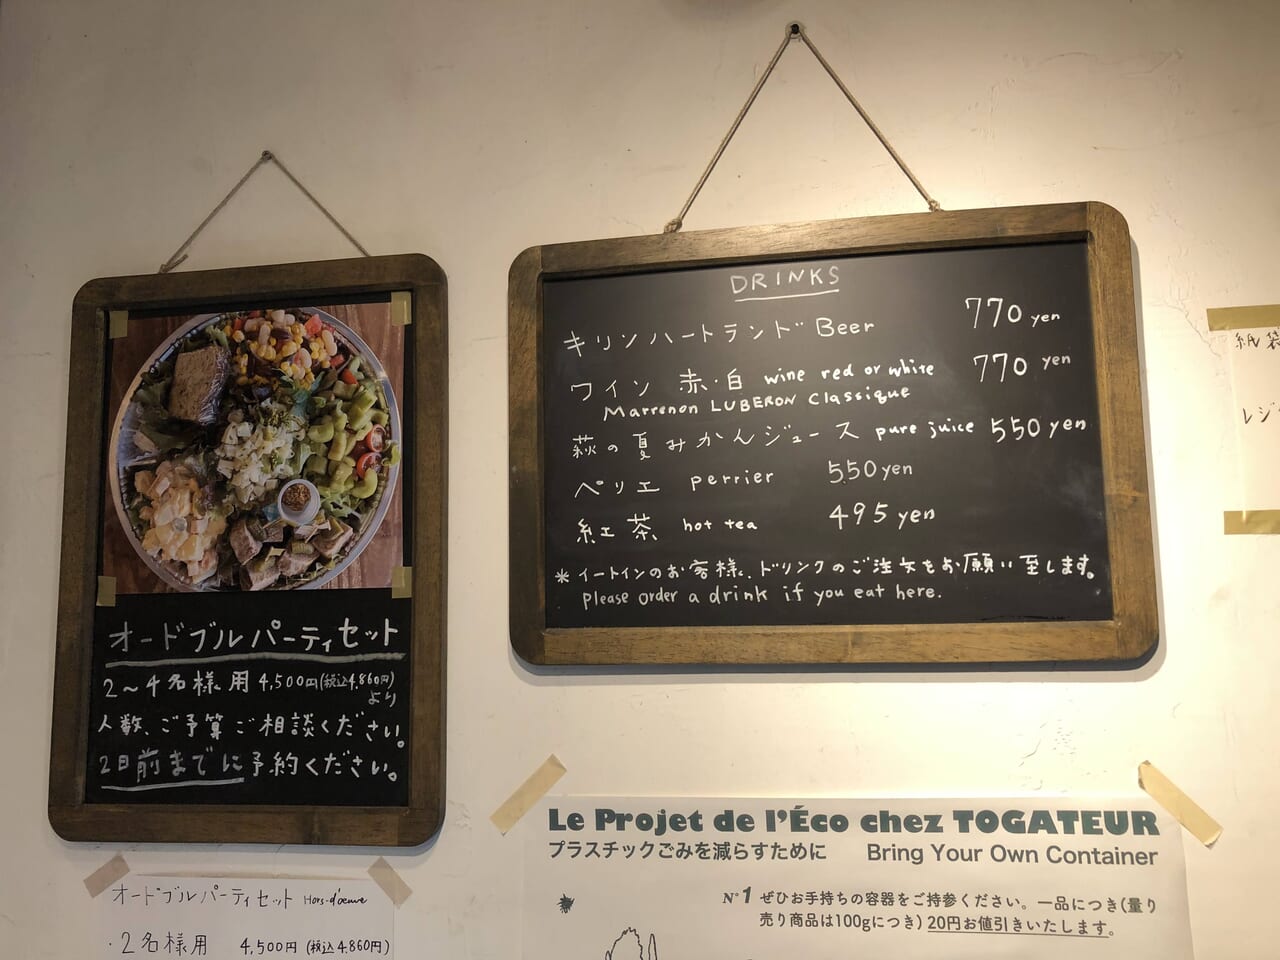 オードブルパーティセット
2〜4名様用 4,500円(税込4.860円)
より
人数、ご予算ご相談ください。
2日前までに予約ください。
オードブルパーティセット Hors-d'oeuvre
・2名様用 4,500円 (税込4.860円)
DRINKS
キリンハートランド Beer 770 yen
ワイン 赤・白 wine red or white 770 yen
Marrenon LUBERON Classique
萩の夏みかんジュース pure juice 550 yen
ペリエ perrier 550 yen
紅茶 hot tea 495 yen
* イートインのお客様、ドリンクのご注文をお願い致します。
please order a drink if you eat here.
Le Projet de l'Éco chez TOGATEUR
プラスチックごみを減らすために Bring Your Own Container
N°1 ぜひお手持ちの容器をご持参ください。一品につき(量り
売り商品は100gにつき) 20円お値引きいたします。
紙袋
レジ